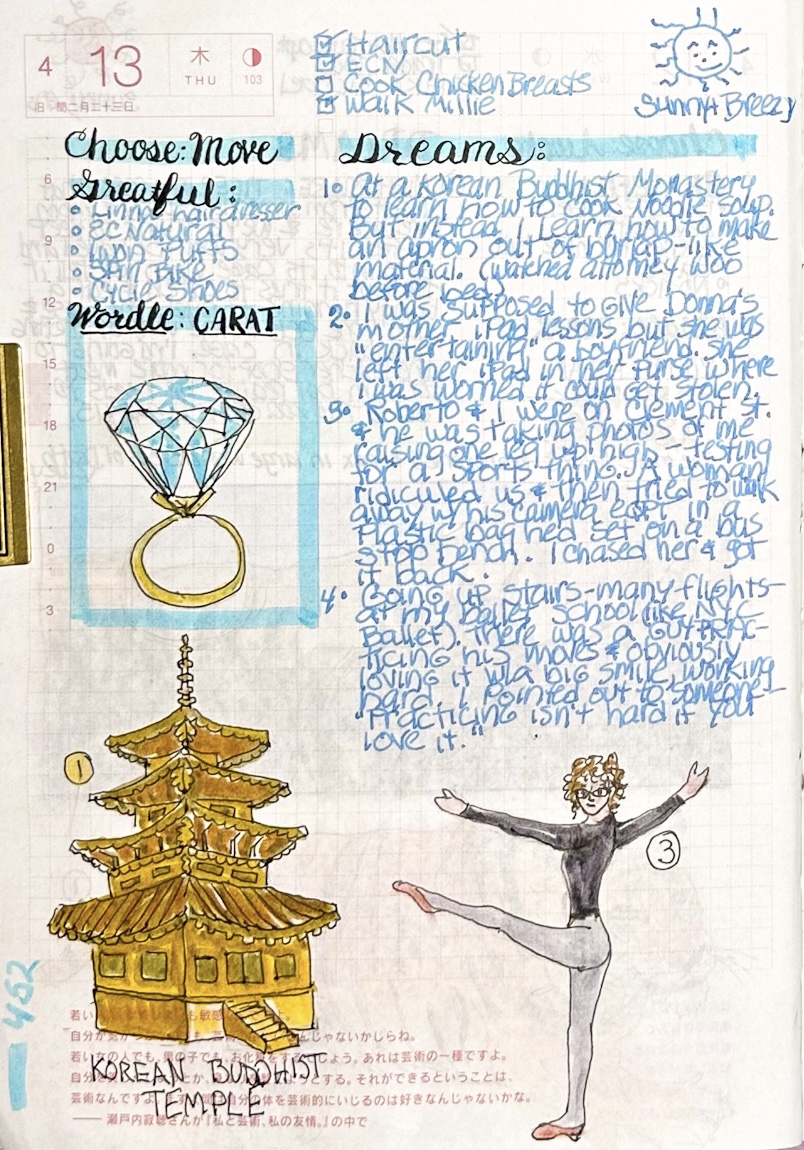 4 13 木 THU 103
旧・閏二月二十三日
Haircut
ECN
Cook Chicken Breasts
Walk Millie
Sunny + Breezy
Choose: Move
Greatful:
• Linna hairdresser
• EC Natural
• Luon Puffs
• Spin Bike
• Cycle Shoes
Wordle: CARAT
6
9
12
15
18
21
0
3
Dreams:
1. At a Korean Buddhist Monastery
to learn how to cook Noodle soup.
But instead I learn how to make
an apron out of burlap-like
material. (watched attorney Woo
before bed)
2. I was supposed to give Donna's
mother iPad lessons but she was
"entertaining" a boyfriend. She
left her iPad in her purse where
I was worried it could get stolen.
3. Roberto & I were on Clement St.
& he was taking photos of me
raising one leg up high - testing
for a sports thing. A woman
ridiculed us & then tried to walk
away w/his camera eqpt in a
Plastic bag he'd set on a bus
stop bench. I chased her & got
it back.
4. Going up stairs-many flights-
at my ballet school (like NYC
Ballet). There was a guy prac-
ticing his moves & obviously
loving it w/a big smile, working
hard. I pointed out to someone-
"Practicing isn't hard if you
love it."
1
3
452
若い
自分が んじゃないかしらね。
若いなの人でも、男の子でも、お化粧をする しょう。あれは芸術の一種ですよ。
自分を とする。それができるということは、
芸術なんですよ 自分の体を芸術的にいじるのは好きなんじゃないかな。
―― 瀬戸内寂聴さんが『私と芸術、私の友情。』の中で
KOREAN BUDDHIST
TEMPLE